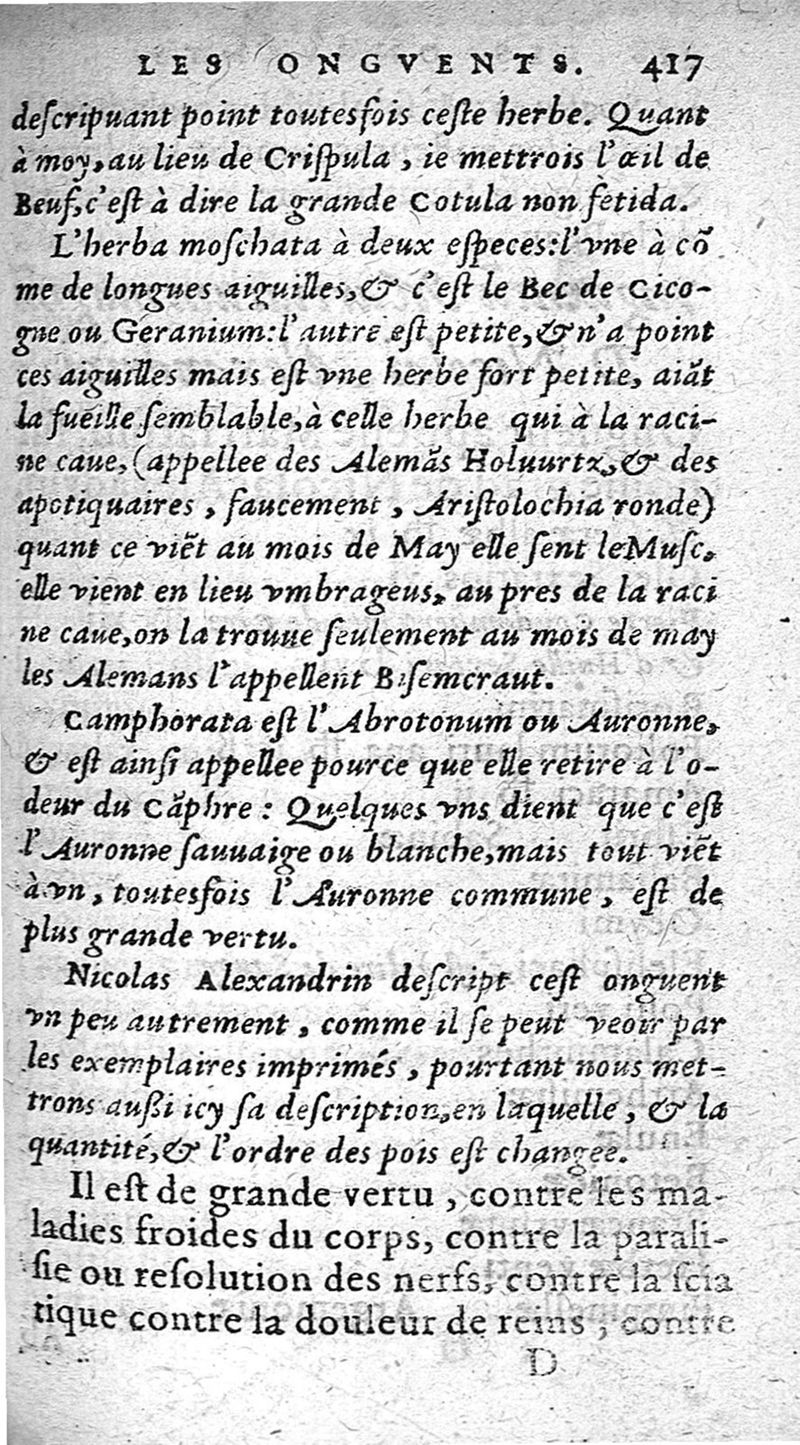 LES ONGVENTS. 417
deſcripuant point toutesfois ceſte herbe. Quant
à moy, au lieu de Criſpula, ie mettrois l'œil de
Beuf, c'eſt à dire la grande Cotula non fetida.
L'herba moſchata à deux eſpeces: l'vne à cõ
me de longues aiguilles, & c'eſt le Bec de Cico-
gne ou Geranium: l'autre eſt petite, & n'a point
ces aiguilles mais eſt vne herbe fort petite, aiãt
la fueille ſemblable, à celle herbe qui à la raci-
ne caue, (appellee des Alemãs Holuurtz, & des
apotiquaires, faucement, Ariſtolochia ronde)
quant ce viẽt au mois de May elle ſent leMuſc,
elle vient en lieu vmbrageus, au pres de la raci
ne caue, on la trouue ſeulement au mois de may
les Alemans l'appellent Biſemcraut.
Camphorata eſt l'Abrotonum ou Auronne,
& eſt ainſi appellee pource que elle retire à l'o-
deur du Cãphre: Quelques vns dient que c'eſt
l'Auronne ſauuaige ou blanche, mais tout viẽt
à vn, toutesfois l'Auronne commune, eſt de
plus grande vertu.
Nicolas Alexandrin deſcript ceſt onguent
vn peu autrement, comme il ſe peut veoir par
les exemplaires imprimés, pourtant nous met-
trons auſſi icy ſa deſcription, en laquelle, & la
quantité, & l'ordre des pois eſt changee.
Il eſt de grande vertu, contre les ma-
ladies froides du corps, contre la parali-
ſie ou reſolution des nerfs, contre la ſcia
tique contre la douleur de reins, contre
D